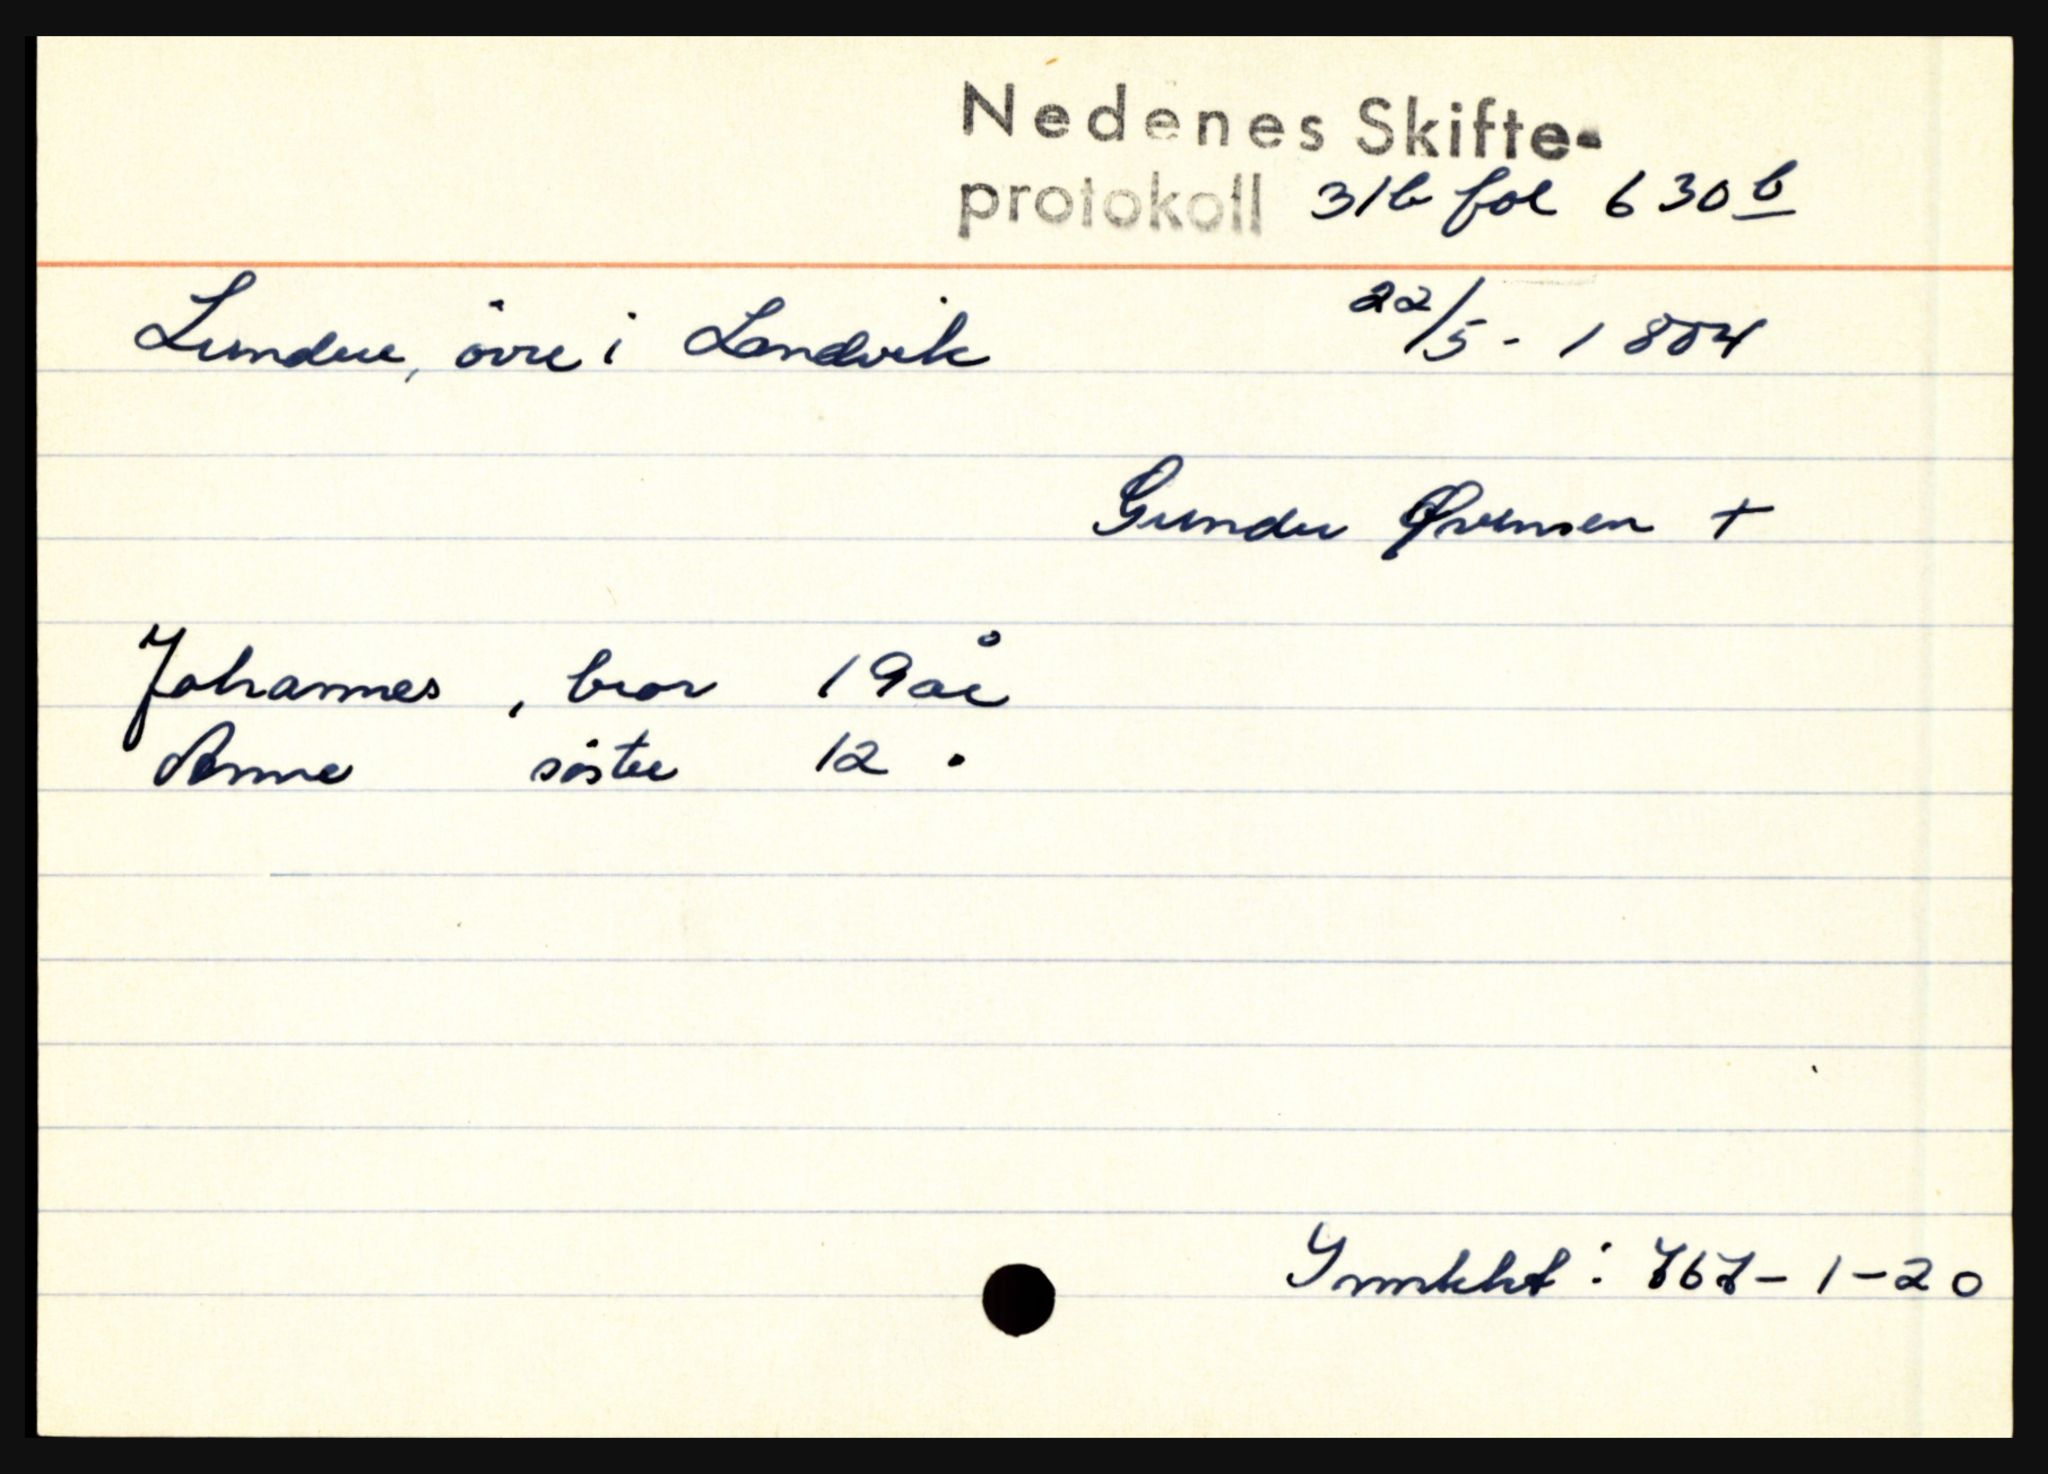 Nedenes Skifte-
protokoll 31b fol 630b
Lundere, øvre i Landvik 22/5-1804
Gunder Øvensen +
Johannes, bror 19 år
Anne søster 12 "
767-1-20